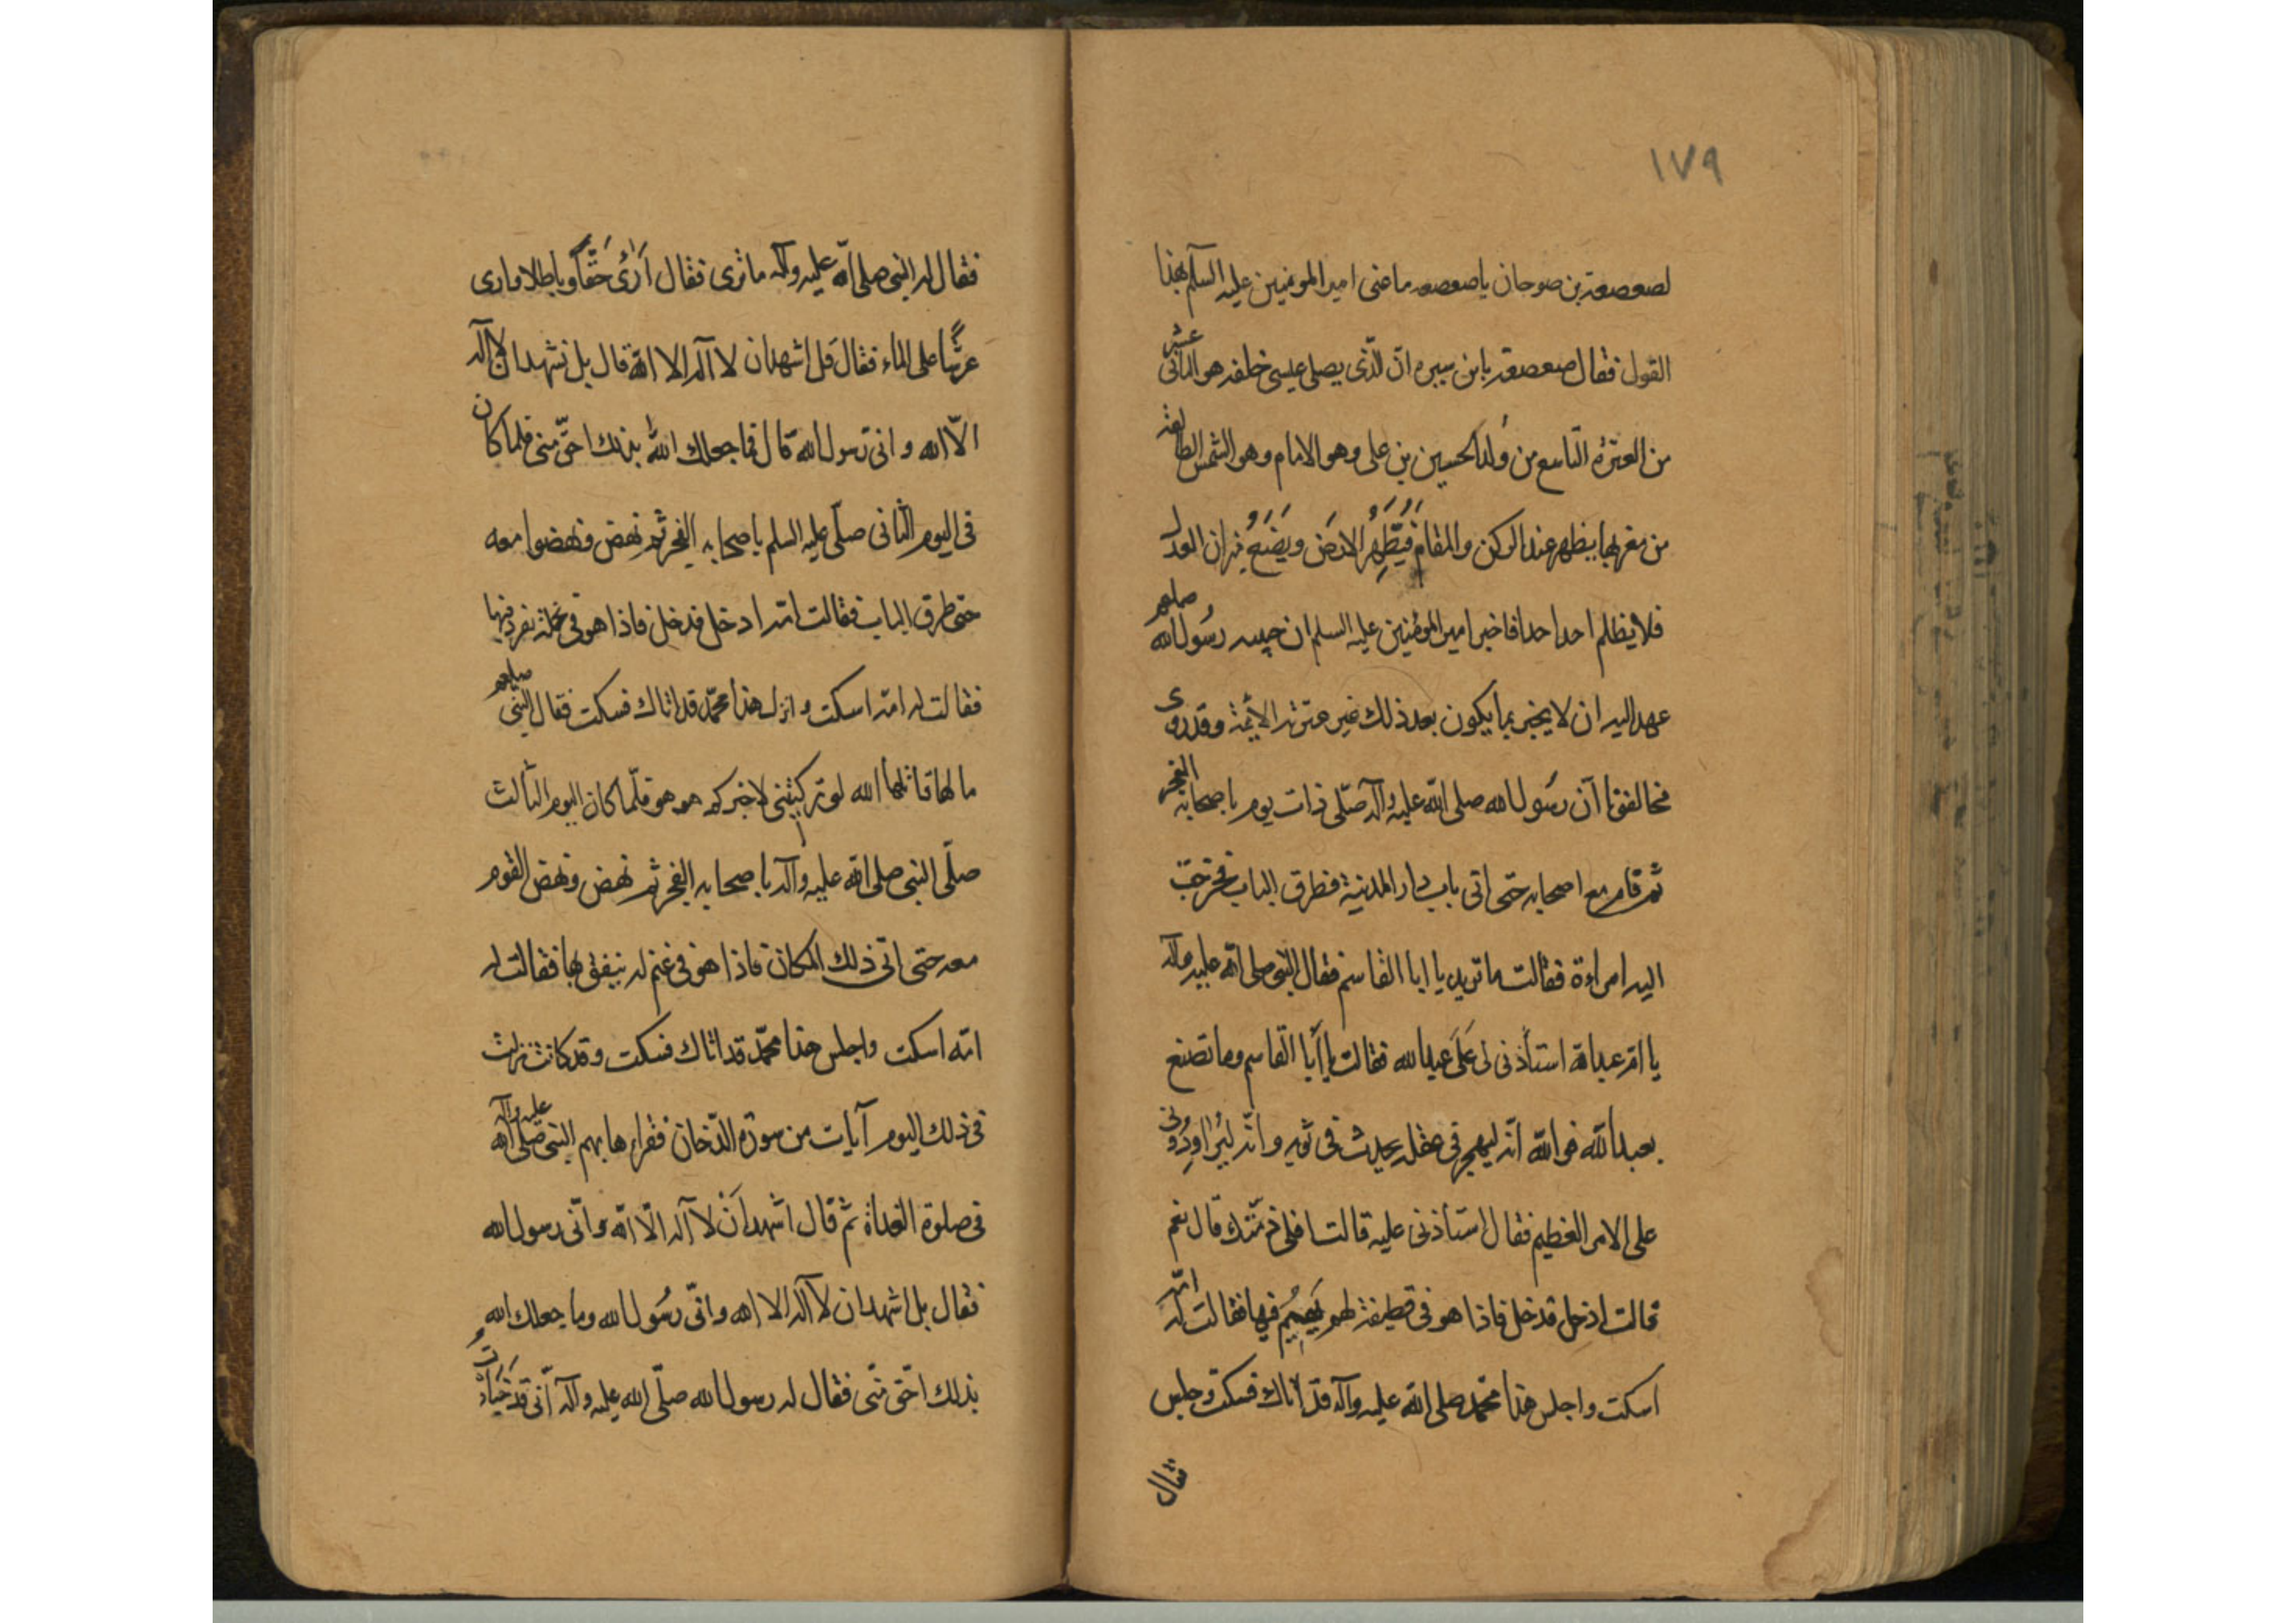 ١٧٩
لصعصعة بن صوحان يا صعصعه ما عنى امير المومنين عليه السلم بهذا
القول فقال صعصعة يا بن سبره ان الّذى يصلى عيسى خلفه هو الثانى عشر
من العترة التاسع من وُلد الحسين بن على وهو الامام وهو الشمس الطالعة
من مغربها يظهر عند الركن والمقام فَيُطَهِّرُ الارض وَيَضَعُ ميزان العدل
فلا يظلم احد احدا فاخبر امير المؤمنين عليه السلم ان حبيبه رسُول الله صلعم
عهد اليه ان لا يخبر بما يكون بعد ذلك غير عترته الائمة وقد روى
مخالفونا آن رسُول الله صلى الله عليه وآله صَلّى ذات يوم باصحابه الفجر
ثم قام مع اصحابه حتى اتى باب دار المدينة فطرق الباب فخرجت
اليه امراءة فقالت ما تريد يا ابا القاسم فقال النبى صلى الله عليه وآله
يا ام عبد الله استأذنى لى عَلَى عبد الله فقالت يا أبا القاسم وما تصنع
بعبد الله فو الله انّه ليهجر فى عقله يحدث فى ثوبه وانّه ليُراوِدُنى
على الامر العظيم فقال استأذنى عليه قالت افلى ذمّتك قال نعم
قالت ادخل فدخل فاذا هو فى قطيفة لهو يَهِيمُ فيها فقالت له امّه
اسكت واجلس هذا محمّد صلى الله عليه وآله قد اتاك فسكت وجلس
فقال
فقال له النبى صلى الله عليه وآله ما ترى فقال اَرىٰ حَقّاً وباطلا وارى
عرشًا على الماء فقال قل اشهد ان لا آله الا الله قال بل نشهد ان لا اله
الّا الله وانى رسول الله قال فما جعلك اللهُ بذلك احقّ منى فلما كان
فى اليوم الثانى صلّى عليه السلم باصحابه الفجر ثم نهض ونهضوا معه
حتى طرق الباب فقالت امّه ادخل فدخل فاذا هو فى نخلة يغرد فيها
فقالت له امّه اسكت وانزل هذا محمّد قد اتاك فسكت فقال النبى صلعم
ما لها قاتلها الله لو تركتنى لاخبركم هو هو فلمّا كان اليوم الثالث
صلّى النبى صلى الله عليه وآله باصحابه الفجر ثم نهض ونهض القوم
معه حتى اتى ذلك المكان فاذا هو فى غنم له ينعق بها فقالت له
امّه اسكت واجلس هذا محمّد قد اتاك فسكت وقد كانت نزلت
فى ذلك اليوم آيات من سورة الدّخان فقراءها بهم النبى صلى الله عليه وآله
فى صلوة الغداة ثم قال اشهد اَن لا آله الّا الله وانّى رسول الله
فقال بل اشهد ان لا آله الا الله وانّى رسُول الله وما جعلك الله
بذلك احقّ منّى فقال له رسول الله صلّى الله عليه وآله آنى قد خبأت